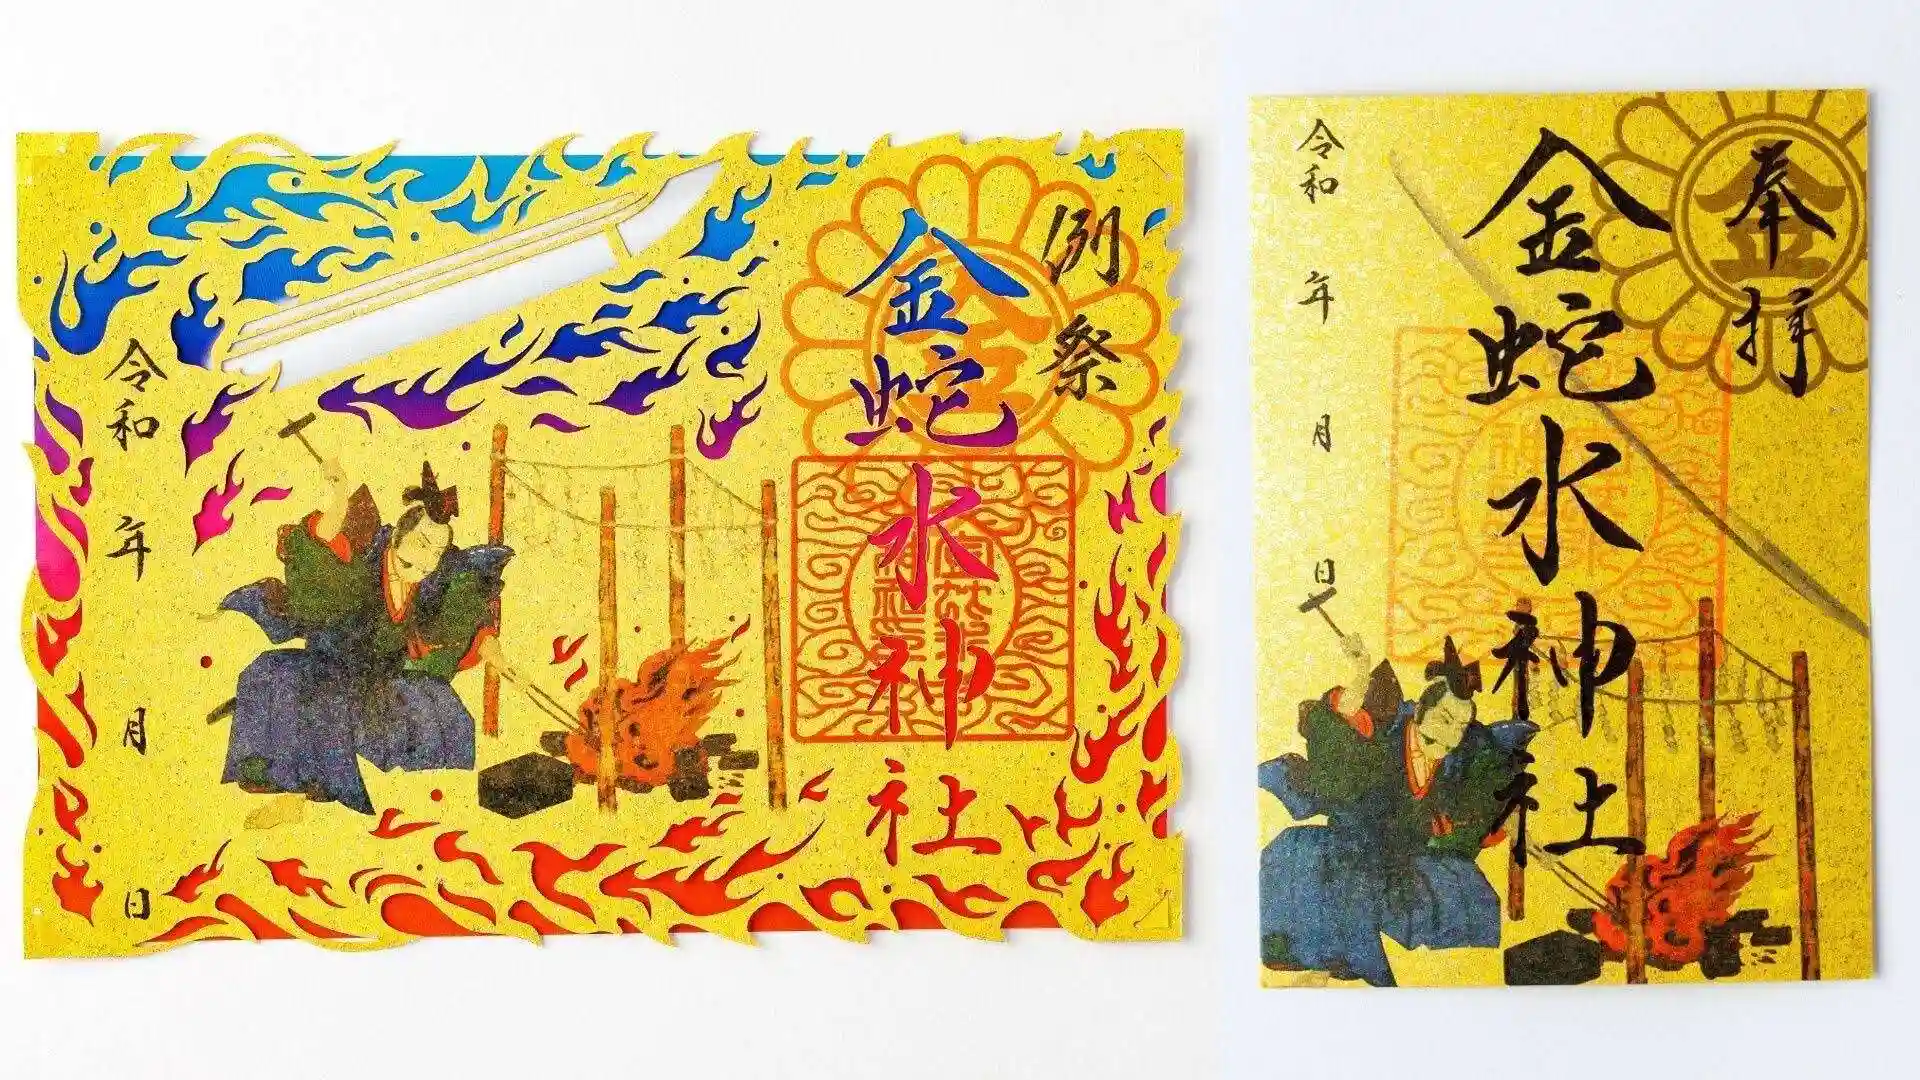 例祭
金蛇水神社
令和 年 月 日
奉拝
金蛇水神社
令和 年 月 日